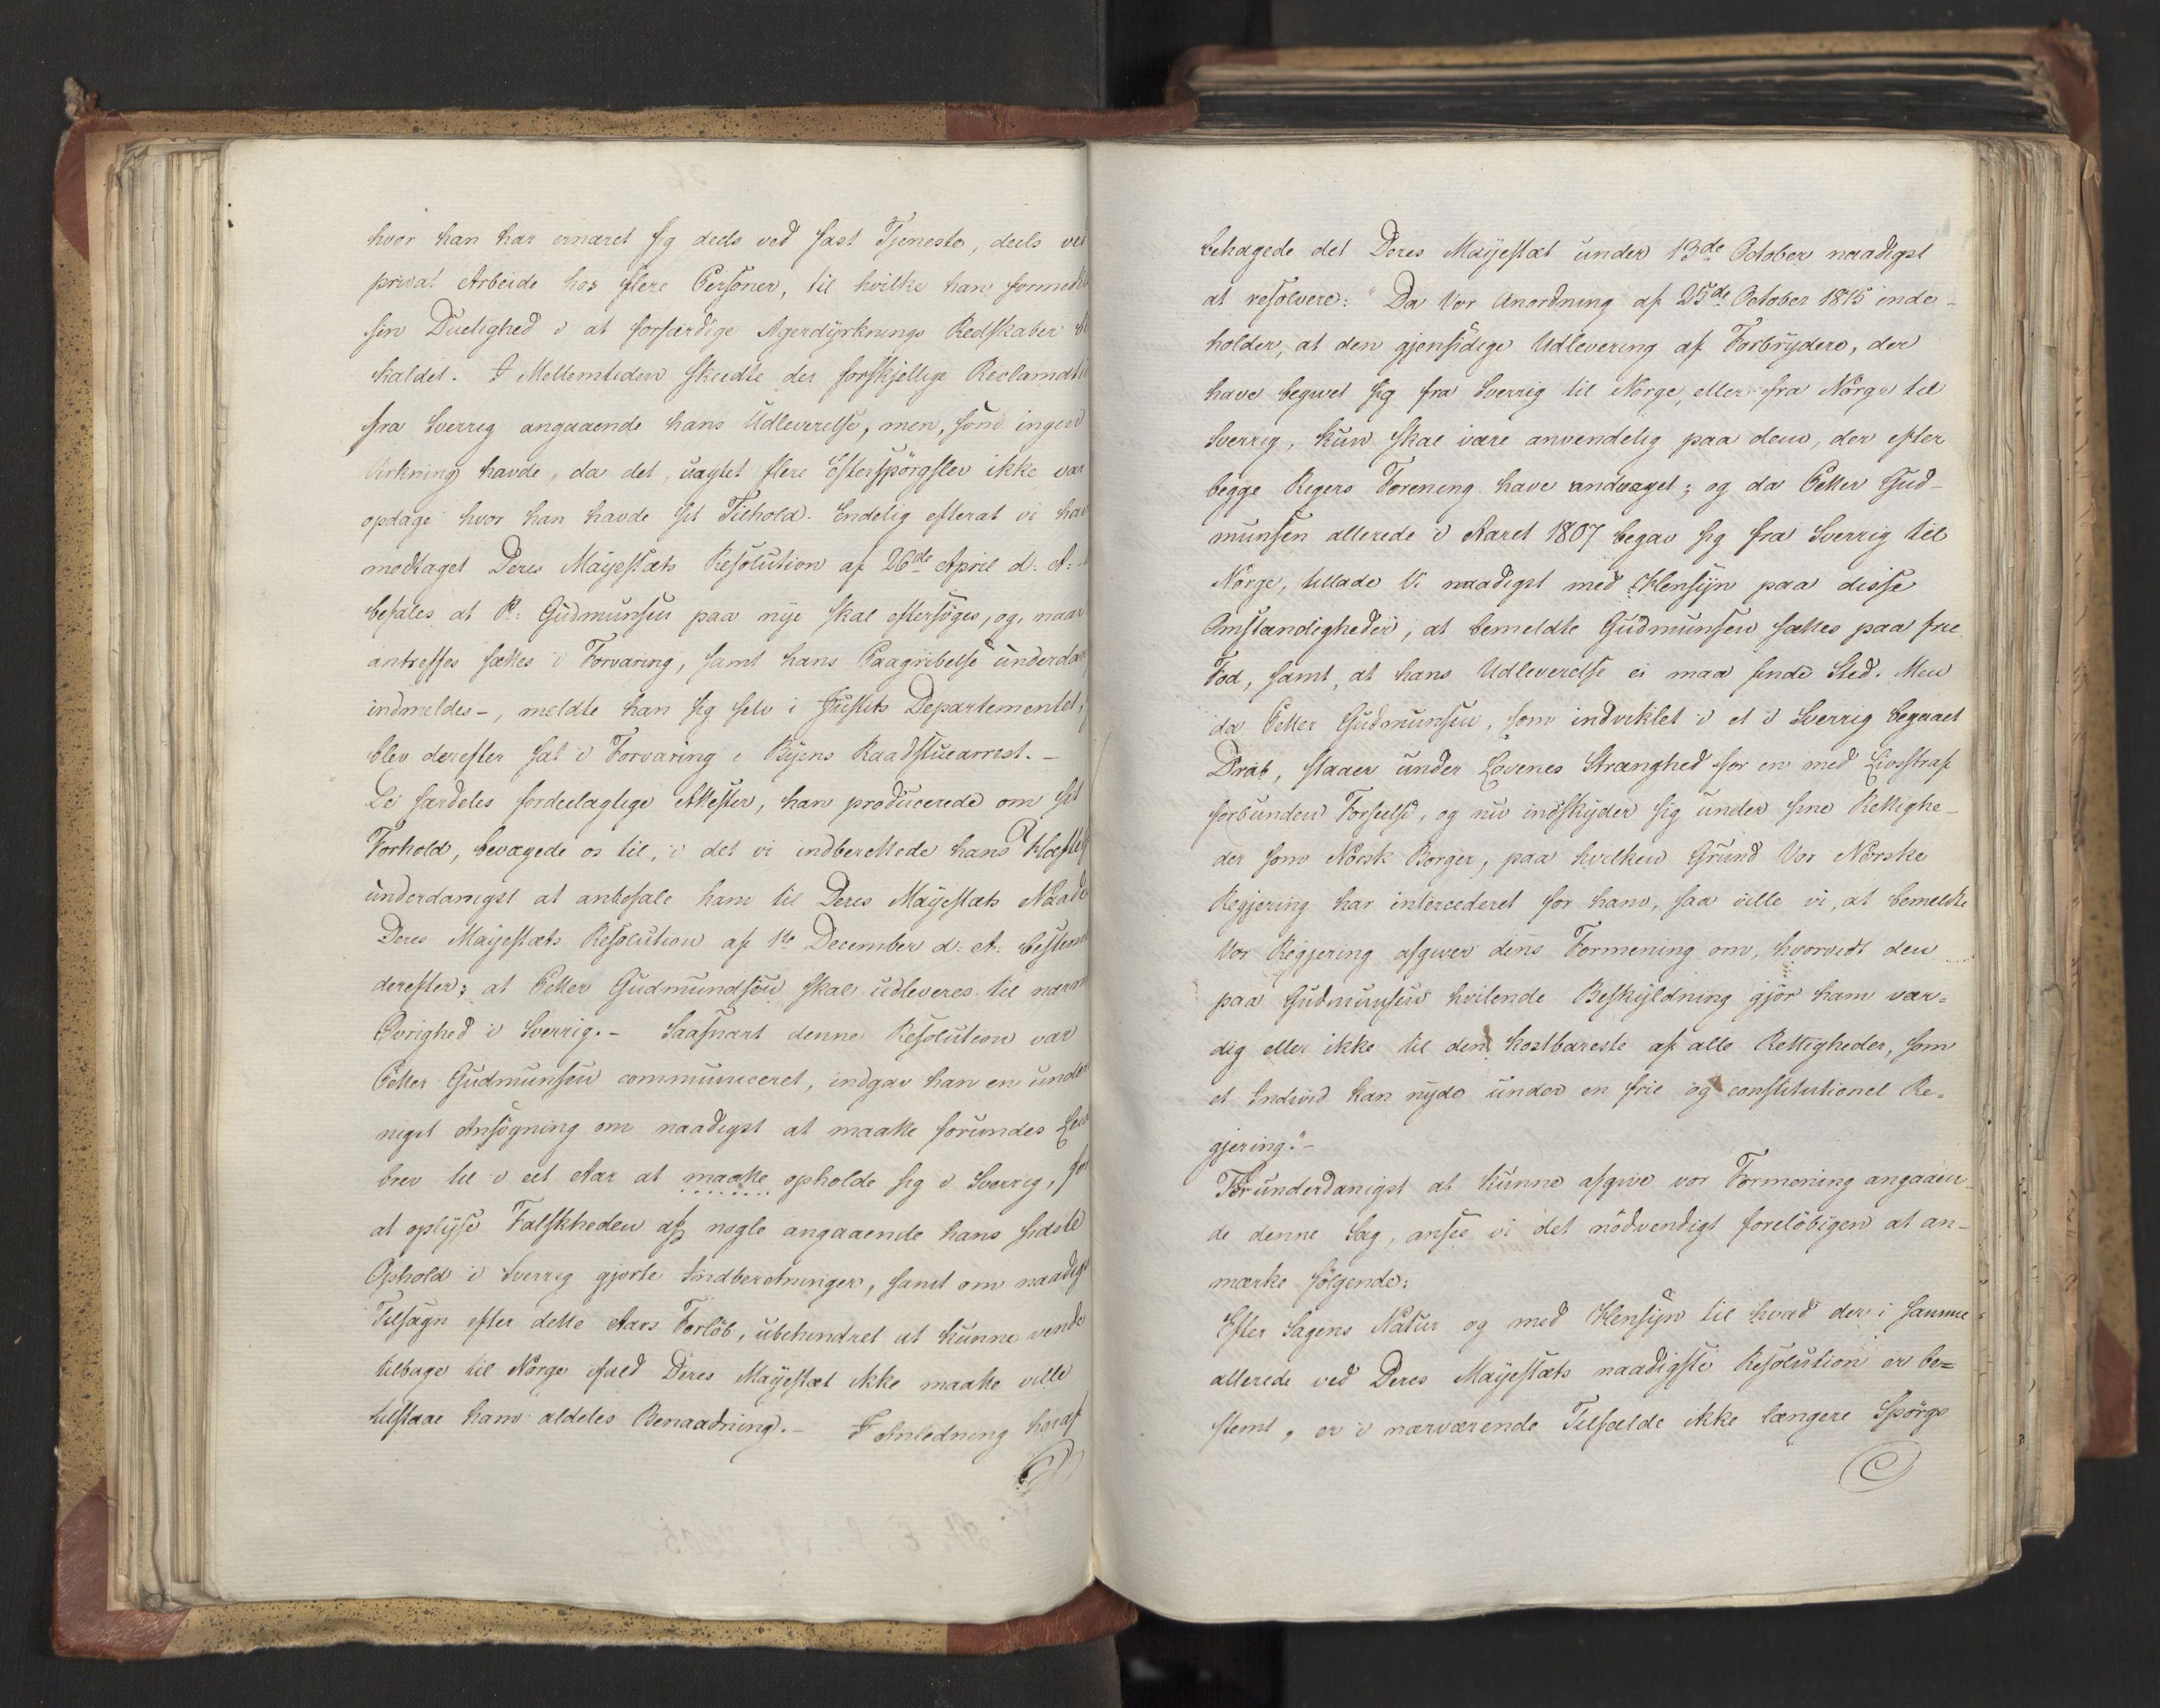 hvor han har ernæret sig deels ved fast Tjeneste, deels ved
privat Arbeide hos flere Personer, til hvilke han formedelst
sin Duelighed i at forfærdige Agerdyrknings Redskaber
kaldet. I Mellemtiden skeedte der forskjellige Reclamationer
fra Sverrig angaaende hans Udleverelse, men, som ingen
Virkning havde, da det, uagtet flere Efterspørgsler ikke var
opdage hvor han havde sit Tilhold. Endelig efterat vi have
modtaget Deres Mayestæts Resolution af 26de April d: A:
befales at P: Gudmunsen paa nye skal eftersøges, og, naar
antreffes sættes i Forvaring, samt hans Paagribelse underdan
indmeldes-, meldte han sig selv i Justits Departementet,
blev derefter sat i Forvaring i Byens Raadstuearrest.-
De særdeles fordeelagtige Attester, han producerede om sit
Forhold, bevægede os til, i det vi indberettede hans Hæftelse
underdanigst at anbefale ham til Deres Mayestæts Naade
Deres Mayestæts Resolution af 1te December d: A: bestemte
derefter; at Petter Gudmundsen skal udleveres til nærm
Øvrighed i Sverrig.- Saasnart denne Resolution var
Petter Gudmunsen communiceret, indgav han en under
nigst Ansøgning om naadigst at maatte forundes Leide
brev til i eet Aar at maatte opholde sig i Sverrig, for
at oplyse Falskheden af nogle angaaende hans sidste
Ophold i Sverrig gjorte Indberetninger, samt om naadigst
Tilsagn efter dette Aars Forløb, ubehindret at kunne vende
tilbage til Norge ifald Deres Mayestæt ikke maatte ville
tilstaae ham aldeles Benaadning.- I Anledning heraf
behagede det Deres Mayestæt under 13de October naadigst
at resolvere: "Da Vor Anordning af 25de October 1815 inde-
holder, at den gjensidige Udlevering af Forbrydere, der
have begivet sig fra Sverrig til Norge, eller fra Norge til
Sverrig, kun skal være anvendelig paa dem, der efter
begge Rigers Forening have undvaget; og da Petter Gud-
munsen allerede i Aaret 1807 begav sig fra Sverrig til
Norge, tillade Vi naadigst med Hensyn paa disse
Omstændigheder, at bemeldte Gudmunsen sættes paa frie
Fod, samt, at hans Udleverelse ei maa finde Sted. Men
da Petter Gudmunsen, som indviklet i et i Sverrig begaaet
Drab, staaer under Lovenes Strænghed for en med Livsstraf
forbunden Forseelse, og nu indskyder sig under sine Rettighe-
der som Norsk Borger, paa hvilken Grund Vor Norske
Regjering har intercederet for ham, saa ville vi, at bemeldte
Vor Regjering afgiver dens Formening om, hvorvidt den
paa Gudmunsen hvilende Beskyldning gjør ham vær-
dig eller ikke til den kostbareste af alle Rettigheder, som
et Individ kan nyde under en frie og constitutionel Re-
gjering."-
For underdanigst at kunne afgive vor Formening angaaen-
de denne Sag, ansee vi det nødvendigt foreløbigen at an-
mærke følgende:
Efter Sagens Natur og med Hensyn til hvad der i samme
allerede ved Deres Mayestæts naadigste Resolution er be-
stemt, er i nærværende Tilfælde ikke længere Spørgs